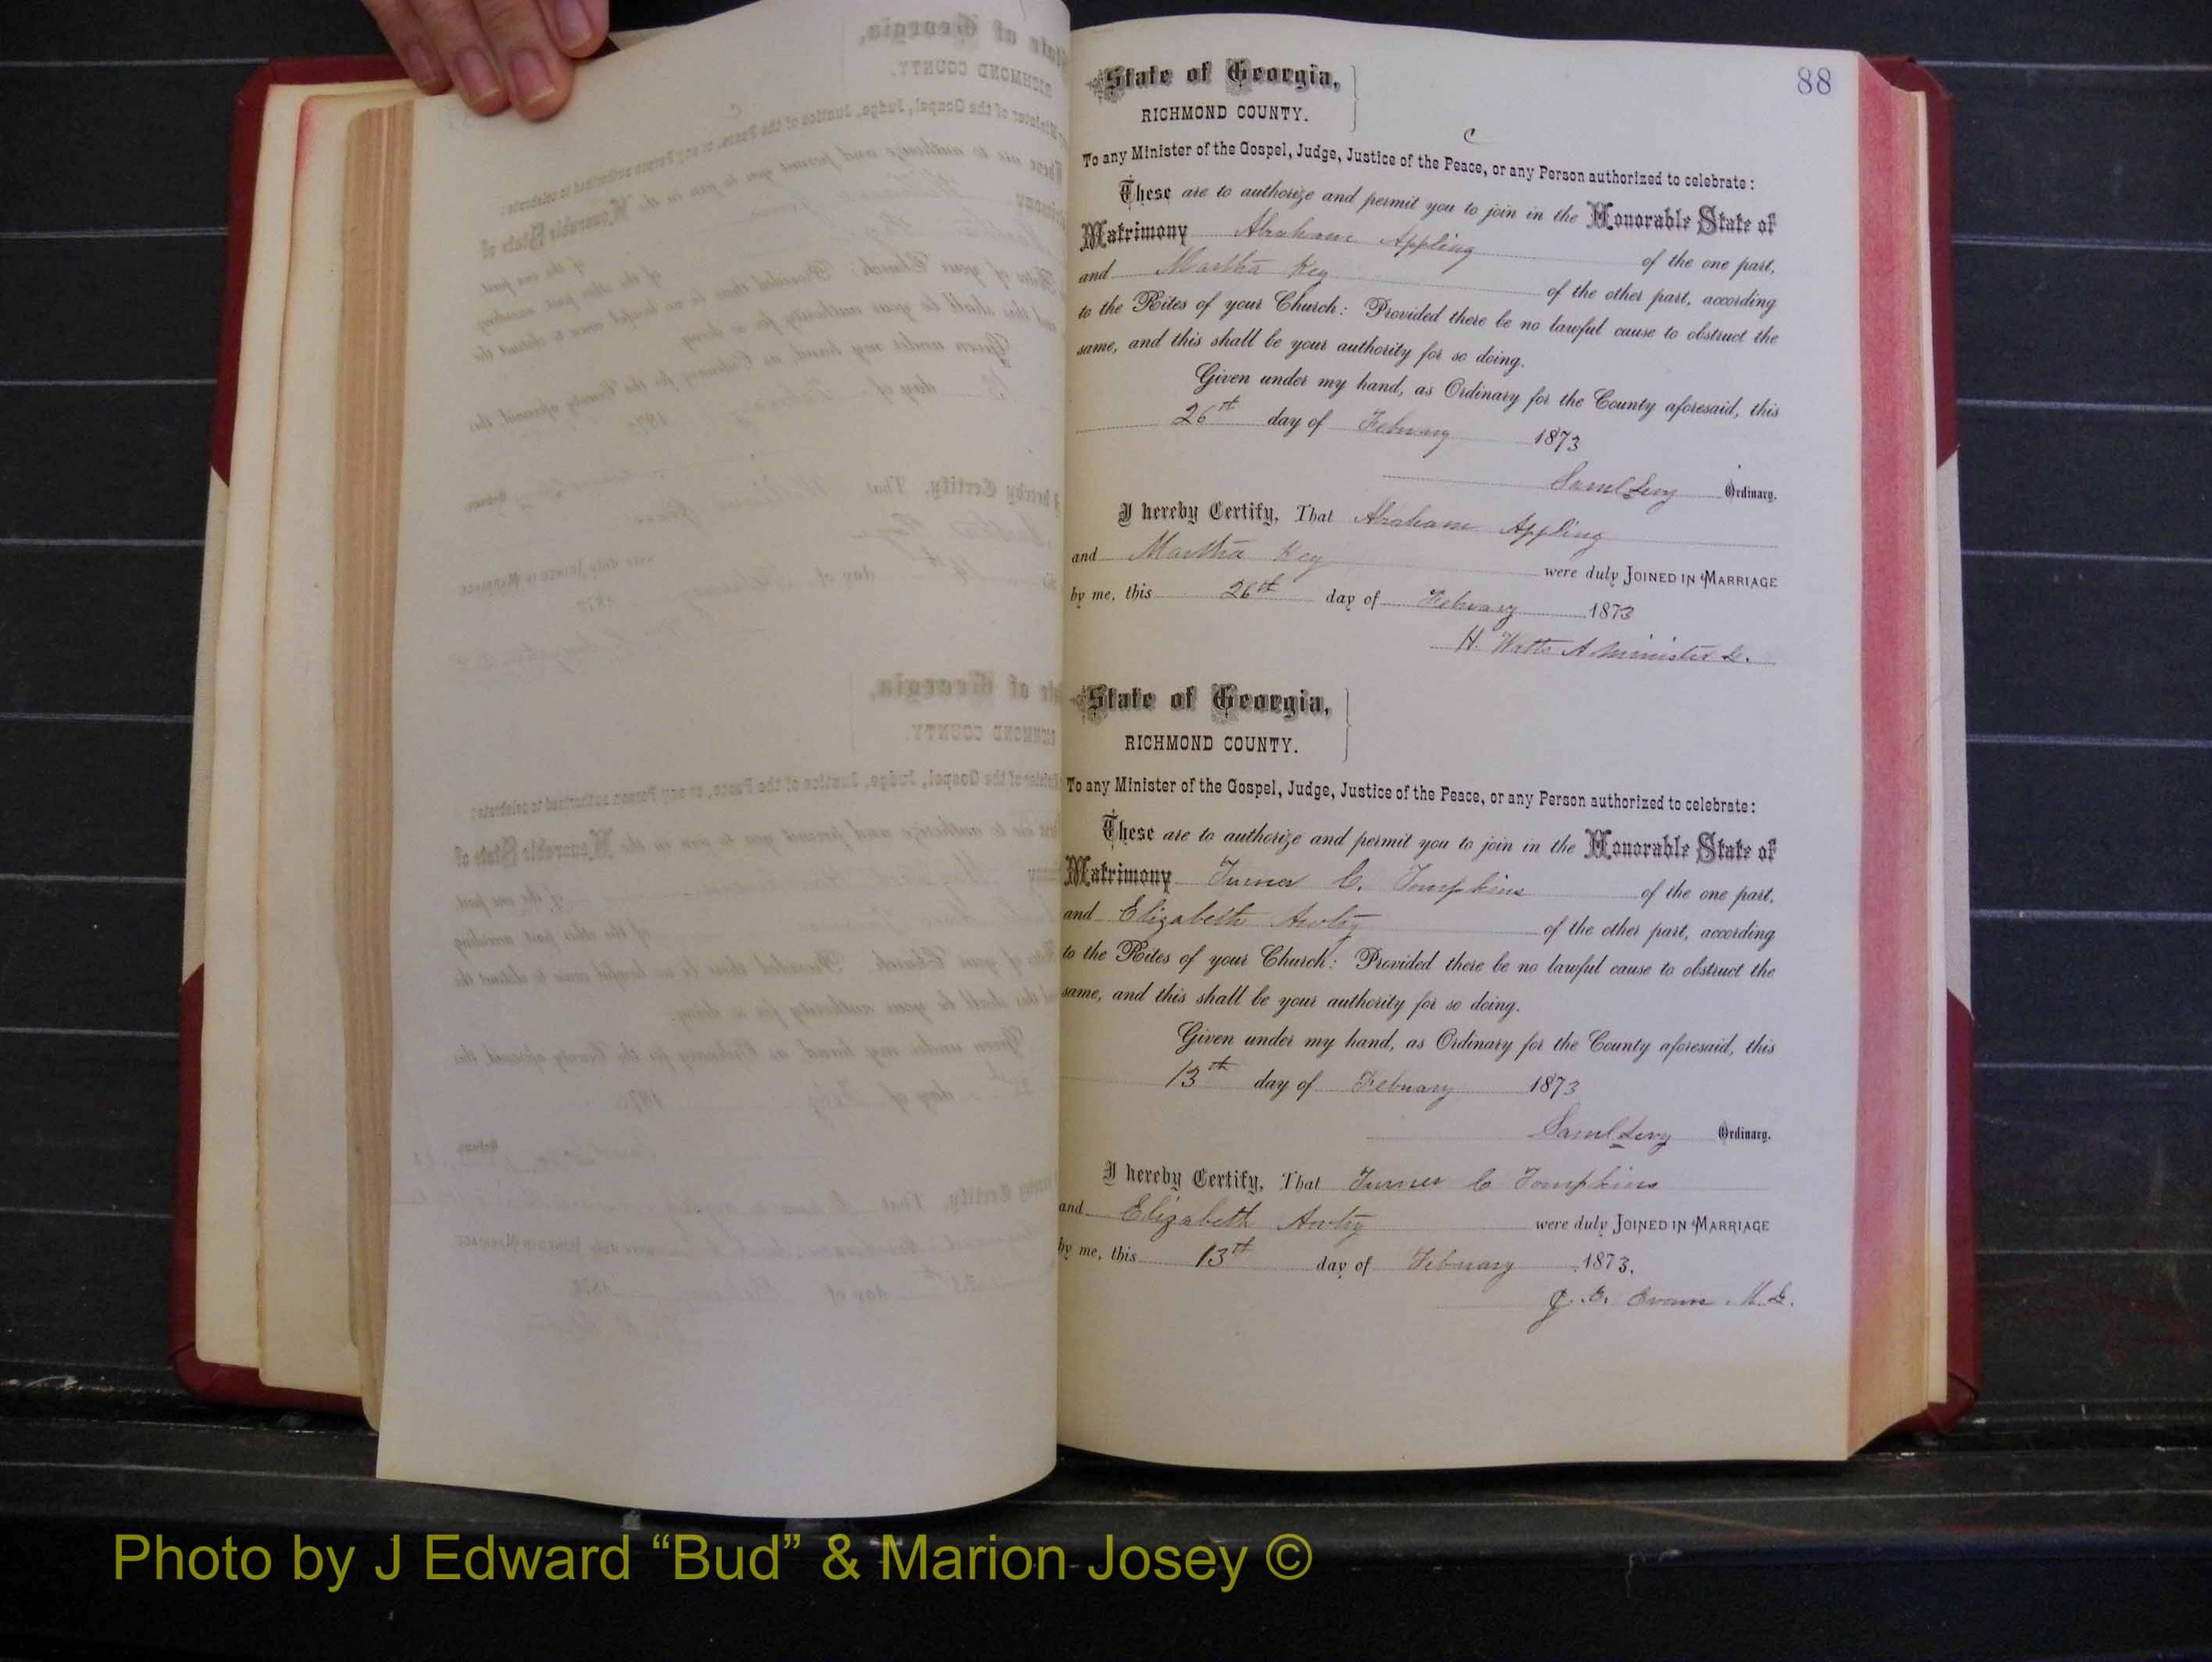 88
State of Georgia,
RICHMOND COUNTY.
C
To any Minister of the Gospel, Judge, Justice of the Peace, or any Person authorized to celebrate:
These are to authorize and permit you to join in the Honorable State of
Matrimony Abraham Appling of the one part,
and Martha Key of the other part, according
to the Rites of your Church: Provided there be no lawful cause to obstruct the
same, and this shall be your authority for so doing.
Given under my hand, as Ordinary for the County aforesaid, this
26th day of February 1873
Saml Levy Ordinary.
I hereby Certify, That Abraham Appling
and Martha Key were duly JOINED IN MARRIAGE
by me, this 26th day of February 1873
H. Watts A Minister G.
State of Georgia,
RICHMOND COUNTY.
To any Minister of the Gospel, Judge, Justice of the Peace, or any Person authorized to celebrate:
These are to authorize and permit you to join in the Honorable State of
Matrimony Turner C. Tompkins of the one part,
and Elizabeth of the other part, according
to the Rites of your Church: Provided there be no lawful cause to obstruct the
same, and this shall be your authority for so doing.
Given under my hand, as Ordinary for the County aforesaid, this
13th day of February 1873
Saml Levy Ordinary.
I hereby Certify, That Turner C Tompkins
and Elizabeth were duly JOINED IN MARRIAGE
by me, this 13th day of February 1873.
J. E. Evans M. G.
Photo by J Edward “Bud” & Marion Josey ©